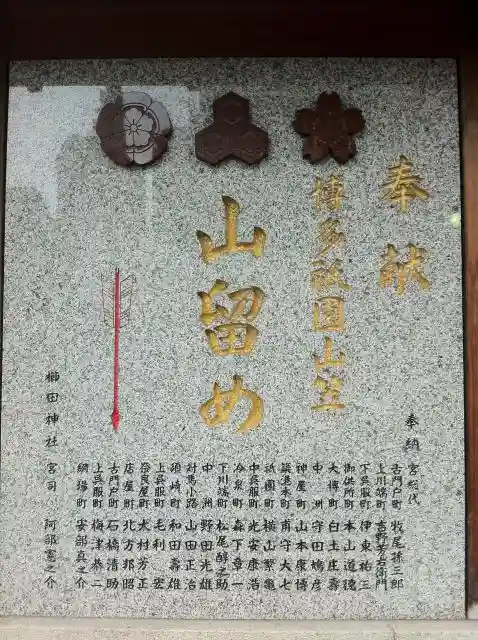 奉献
博多祇園山笠
山留め
奉納 宮総代
古門戸町 牧尾孫三郎
上川端町 吉野芳右衛門
下呉服町 伊東祐三
御供所町 本山道徳
大博町 白土庄壽
神屋町 山本康博
中洲 守田鳩彦
築港本町 甫守大七
祇園町 横山繁亀
中呉服町 光安康浩
冷泉町 森下章一
下川端町 松尾醇之助
中洲 野田光雄
対馬小路 山田正治
須崎町 和田壽雄
上呉服町 毛利宏
奈良屋町 大村芳正
店屋町 北方邦昭
古門戸町 石橋清助
上呉服町 梅津恭二
綱場町 安部真之介
櫛田神社 宮司 阿部憲之介